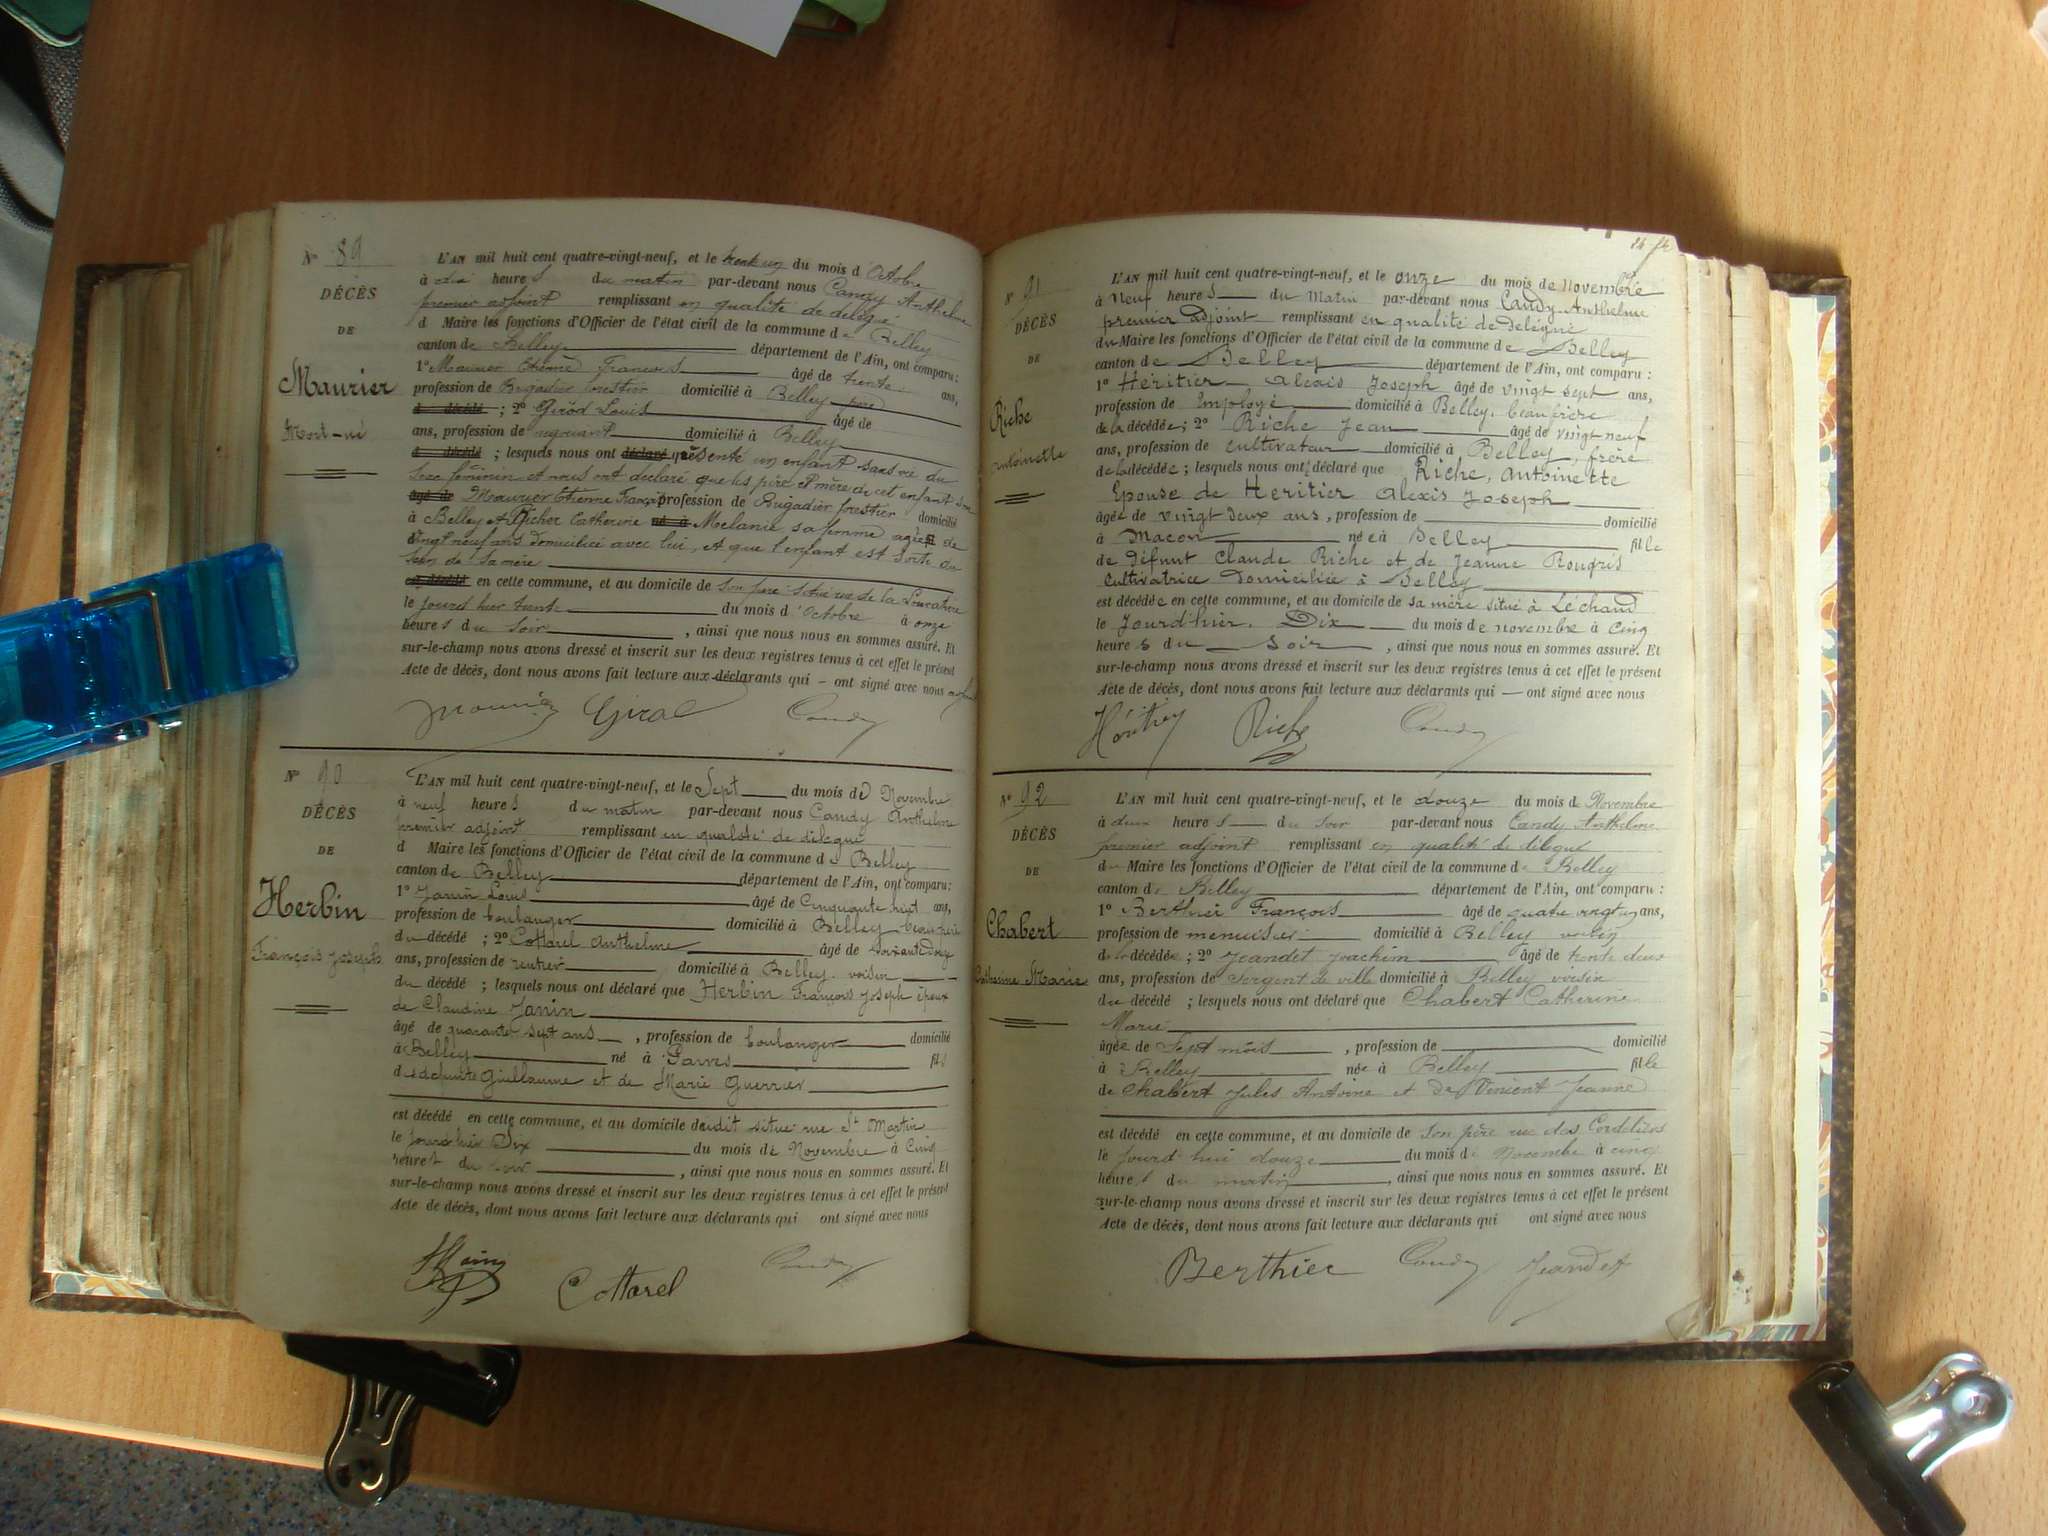 N° 89
DÉCÈS
DE
Maurier
Mort-né
L'AN mil huit cent quatre-vingt-neuf, et le trente un du mois d'Octobre
à dix heures du matin par-devant nous Candy Anthelme
premier adjoint remplissant en qualité de délégué
d Maire les fonctions d'Officier de l'état civil de la commune de Belley
canton de Belley département de l'Ain, ont comparu :
1° Maurier Etienne Francois âgé de trente ans,
profession de Brigadier forestier domicilié à Belley père
d décédé ; 2° Girod Louis âgé de
ans, profession de domicilié à Belley
d décédé ; lesquels nous ont déclaré présenté un enfant sans vie du
sexe féminin et nous ont déclaré que les père et mère de cet enfant son
âgé de Maurier Etienne François profession de Brigadier forestier domicilié
à Belley et Richer Catherine né à Melanie sa femme agée de
vingt neuf ans domiciliée avec lui, et que l'enfant est sorti du
sein de sa mère
est décédé en cette commune, et au domicile de son père situé rue de la
le jourd hier trente du mois d'Octobre à onze
heures du soir , ainsi que nous nous en sommes assuré. Et
sur-le-champ nous avons dressé et inscrit sur les deux registres tenus à cet effet le présent
Acte de décès, dont nous avons fait lecture aux déclarants qui – ont signé avec nous
Candy
N° 90
DÉCÈS
DE
Herbin
François Joseph
L'AN mil huit cent quatre-vingt-neuf, et le Sept du mois de Novembre
à neuf heures du matin par-devant nous Candy Anthelme
premier adjoint remplissant en qualité de délégué
d Maire les fonctions d'Officier de l'état civil de la commune de Belley
canton de Belley département de l'Ain, ont comparu :
1° Janin Louis âgé de Cinquante huit ans,
profession de boulanger domicilié à Belley beau père
du décédé ; 2° Cottarel Anthelme âgé de
ans, profession de rentier domicilié à Belley voisin
du décédé ; lesquels nous ont déclaré que Herbin François Joseph époux
de Claudine Janin
âgé de quarante sept ans , profession de boulanger domicilié
à Belley né à fils
de Guillaume et de Marie Guerrier
est décédé en cette commune, et au domicile dudit situé rue St Martin
le jourd hier Dix du mois de Novembre à Cinq
heures du soir , ainsi que nous nous en sommes assuré. Et
sur-le-champ nous avons dressé et inscrit sur les deux registres tenus à cet effet le présent
Acte de décès, dont nous avons fait lecture aux déclarants qui ont signé avec nous
Cottarel Candy
N° 91
DÉCÈS
DE
Riche
Antoinette
L'AN mil huit cent quatre-vingt-neuf, et le onze du mois de novembre
à Neuf heures du Matin par-devant nous Candy Anthelme
premier adjoint remplissant en qualité de délégué
du Maire les fonctions d'Officier de l'état civil de la commune de Belley
canton de Belley département de l'Ain, ont comparu :
1° Héritier Alexis Joseph âgé de vingt sept ans,
profession de Employé domicilié à Belley, beau frère
de la décédée ; 2° Riche Jean âgé de vingt neuf
ans, profession de cultivateur domicilié à Belley, frère
de la décédée ; lesquels nous ont déclaré que Riche, Antoinette
Epouse de Heritier Alexis Joseph
âgée de vingt deux ans , profession de domicilié
à Macon née à Belley fille
de défunt Claude Riche et de Jeanne Rougris
cultivatrice Domiciliée à Belley
est décédée en cette commune, et au domicile de sa mère situé à Léchaud
le Jourd'hier. Dix du mois de novembre à cinq
heures du soir , ainsi que nous nous en sommes assuré. Et
sur-le-champ nous avons dressé et inscrit sur les deux registres tenus à cet effet le présent
Acte de décès, dont nous avons fait lecture aux déclarants qui – ont signé avec nous
Riche Candy
N° 92
DÉCÈS
DE
Chabert
Catherine Marie
L'AN mil huit cent quatre-vingt-neuf, et le douze du mois de Novembre
à deux heures du soir par-devant nous Candy Anthelme
premier adjoint remplissant en qualité de délégué
du Maire les fonctions d'Officier de l'état civil de la commune de Belley
canton de Belley département de l'Ain, ont comparu :
1° Berthier François âgé de quatre vingt un ans,
profession de menuisier domicilié à Belley voisin
de la décédée ; 2° Jeandet Joachim âgé de trente deux
ans, profession de Sergent de ville domicilié à Belley voisin
du décédé ; lesquels nous ont déclaré que Chabert Catherine
Marie
âgée de Sept mois , profession de domicilié
à Belley née à Belley fille
de Chabert Jules Antoine et de Vincent Jeanne
est décédé en cette commune, et au domicile de son père rue des Cordeliers
le jourd'hui douze du mois de Novembre à cinq
heures du matin , ainsi que nous nous en sommes assuré. Et
sur-le-champ nous avons dressé et inscrit sur les deux registres tenus à cet effet le présent
Acte de décès, dont nous avons fait lecture aux déclarants qui ont signé avec nous
Berthier Candy Jeandet